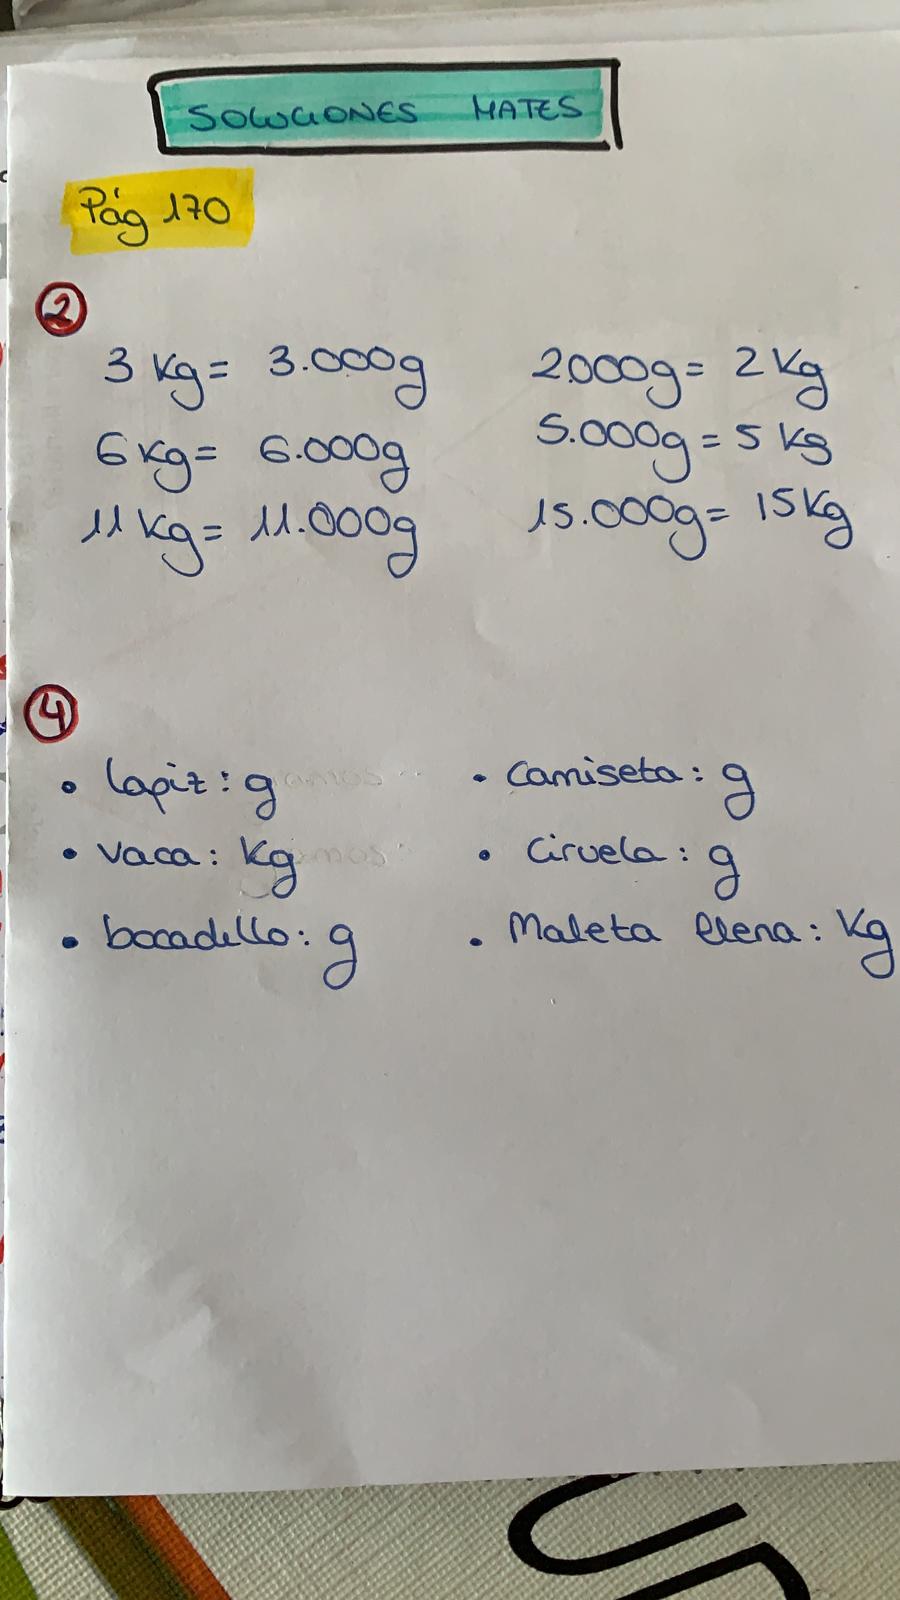 SOLUCIONES MATES
Pág 170
2
3 Kg = 3.000g
2000g = 2 Kg
6 Kg = 6.000g
5.000g = 5 Kg
11 Kg = 11.000g
15.000g = 15 Kg
4
• lapiz: g
• Camiseta: g
• vaca: Kg
• Ciruela: g
• bocadillo: g
• Maleta Elena: Kg